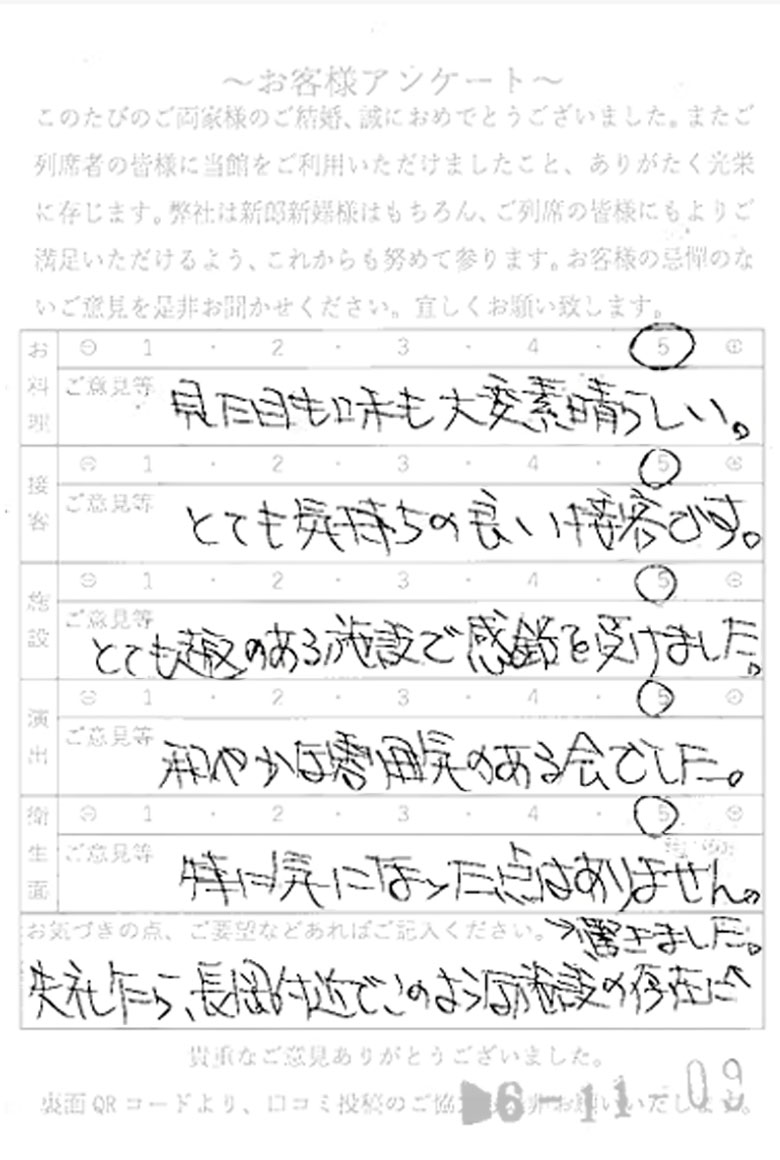 ～お客様アンケート～
このたびのご両家様のご結婚、誠におめでとうございました。またご
列席者の皆様に当館をご利用いただけましたこと、ありがたく光栄
に存じます。弊社は新郎新婦様はもちろん、ご列席の皆様にもよりご
満足いただけるよう、これからも努めて参ります。お客様の忌憚のな
いご意見を是非お聞かせください。宜しくお願い致します。
お料理 ㊀ 1 ・ 2 ・ 3 ・ 4 ・ 5 ㊉
ご意見等 見た目も味も大変素晴らしい。
接客 ㊀ 1 ・ 2 ・ 3 ・ 4 ・ 5
ご意見等 とても気持ちの良い接客です。
施設 ㊀ 1 ・ 2 ・ 3 ・ 4 ・ 5
ご意見等 とても趣のある施設で感銘を受けました。
演出 ㊀ 1 ・ 2 ・ 3 ・ 4 ・ 5
ご意見等 和やかな雰囲気のある会でした。
衛生面 ㊀ 1 ・ 2 ・ 3 ・ 4 ・ 5
ご意見等 特に気になった点はありません。
お気づきの点、ご要望などあればご記入ください。
失礼だから、長岡付近でこのような施設の存在に
→驚きました。
貴重なご意見ありがとうございました。
裏面QRコードより、口コミ投稿のご協力も是非お願いいたします。
6-11.09